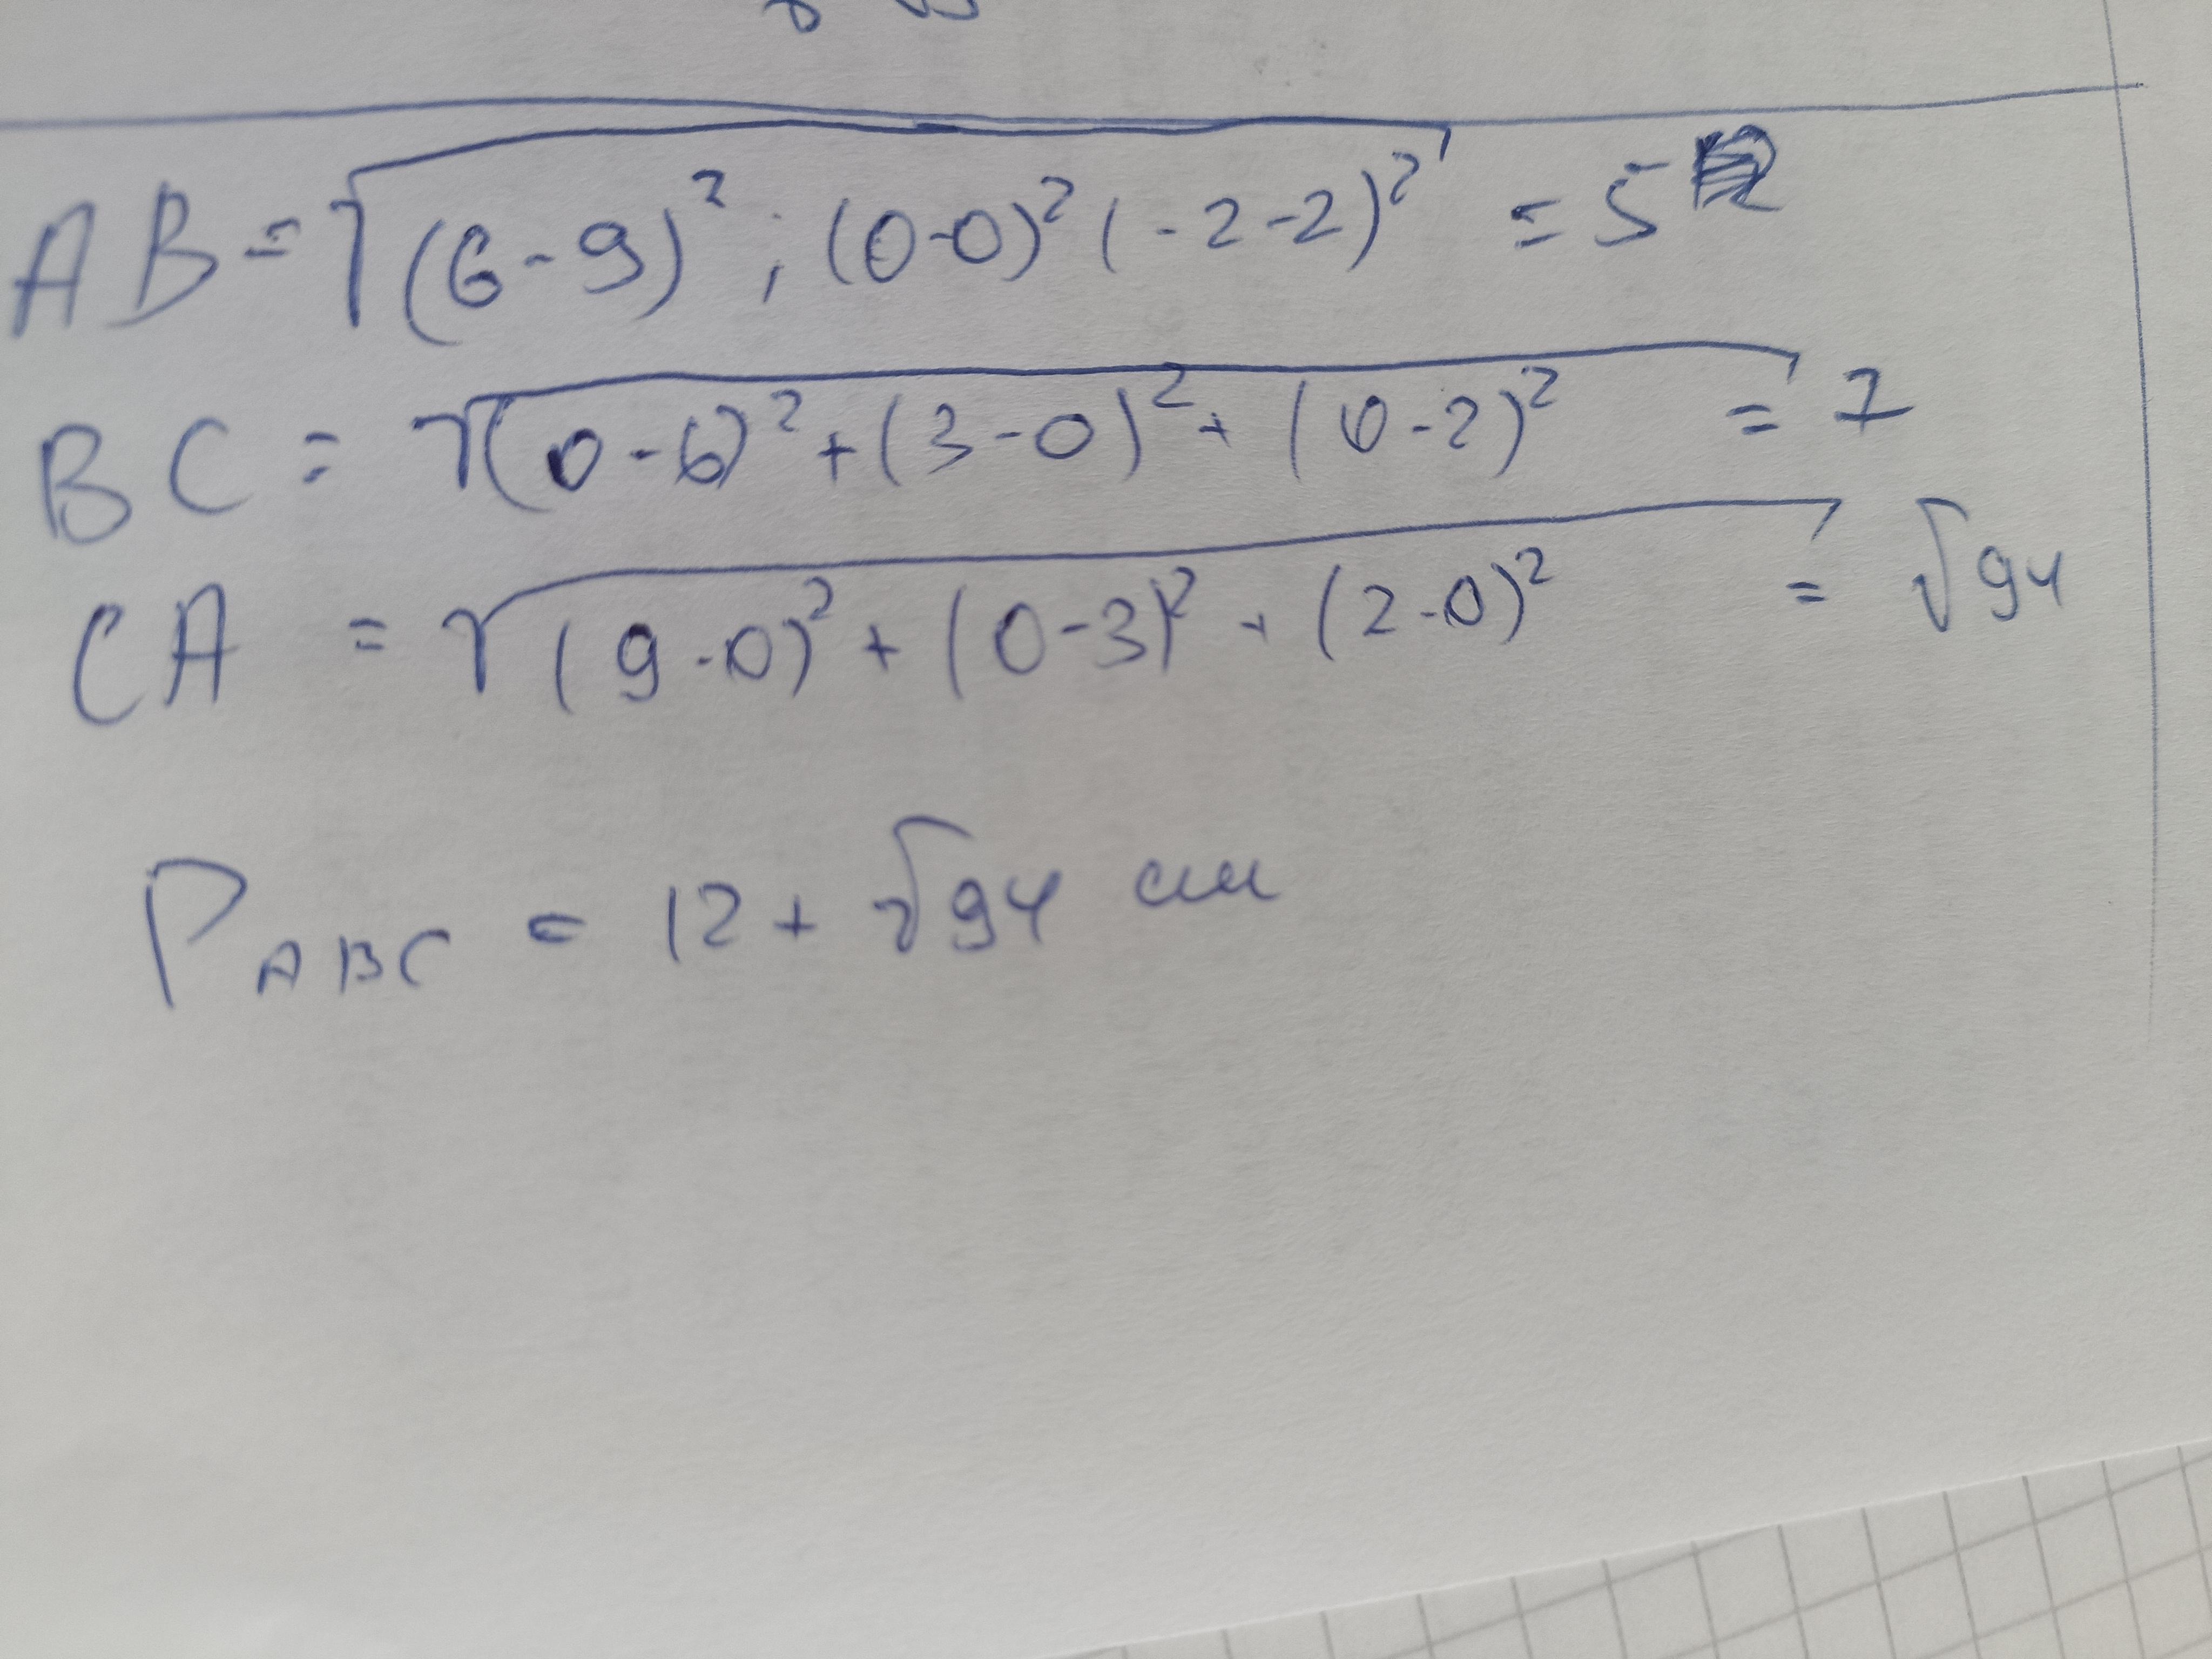 AB = √(6-9)²; (0-0)² (-2-2)² = 5
BC = √(0-6)² + (3-0)² + (0-2)² = 7
CA = √(9-0)² + (0-3)² + (2-0)² = √94
P ABC = 12 + √94 см